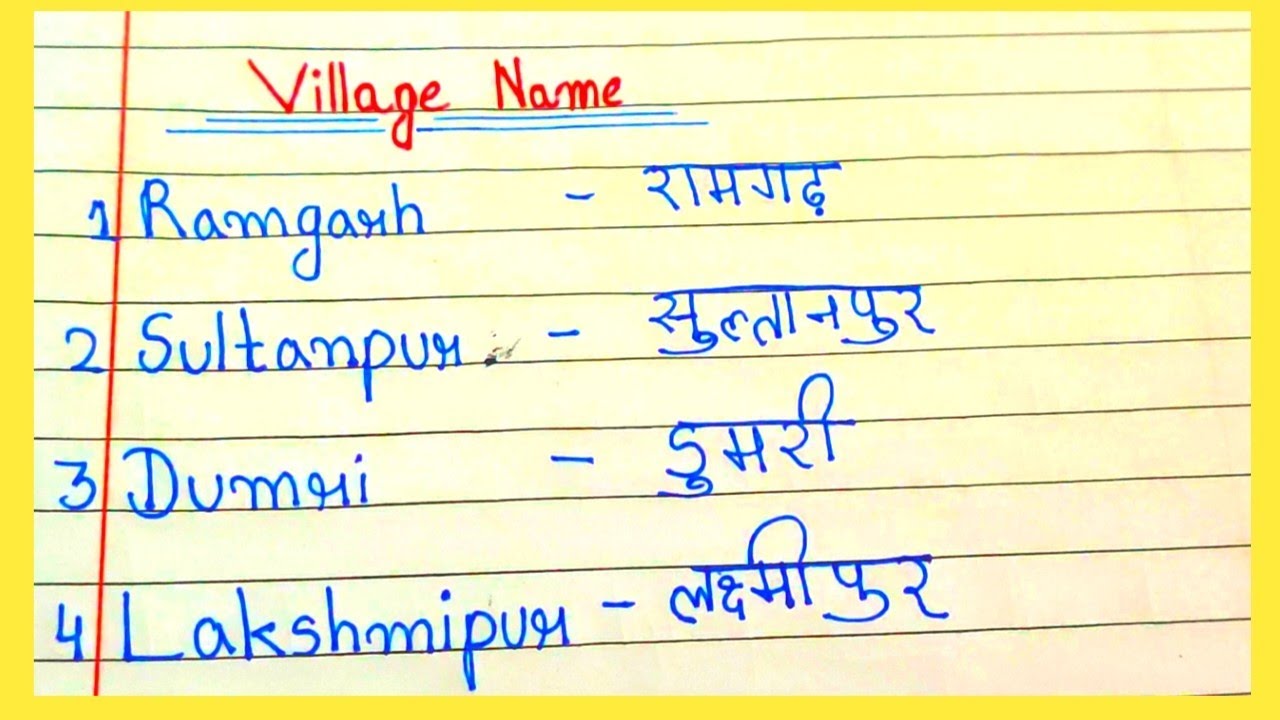 Village Name
1 Ramgarh - रामगढ़
2 Sultanpur - सुल्तानपुर
3 Dumri - डुमरी
4 Lakshmipur - लक्ष्मीपुर